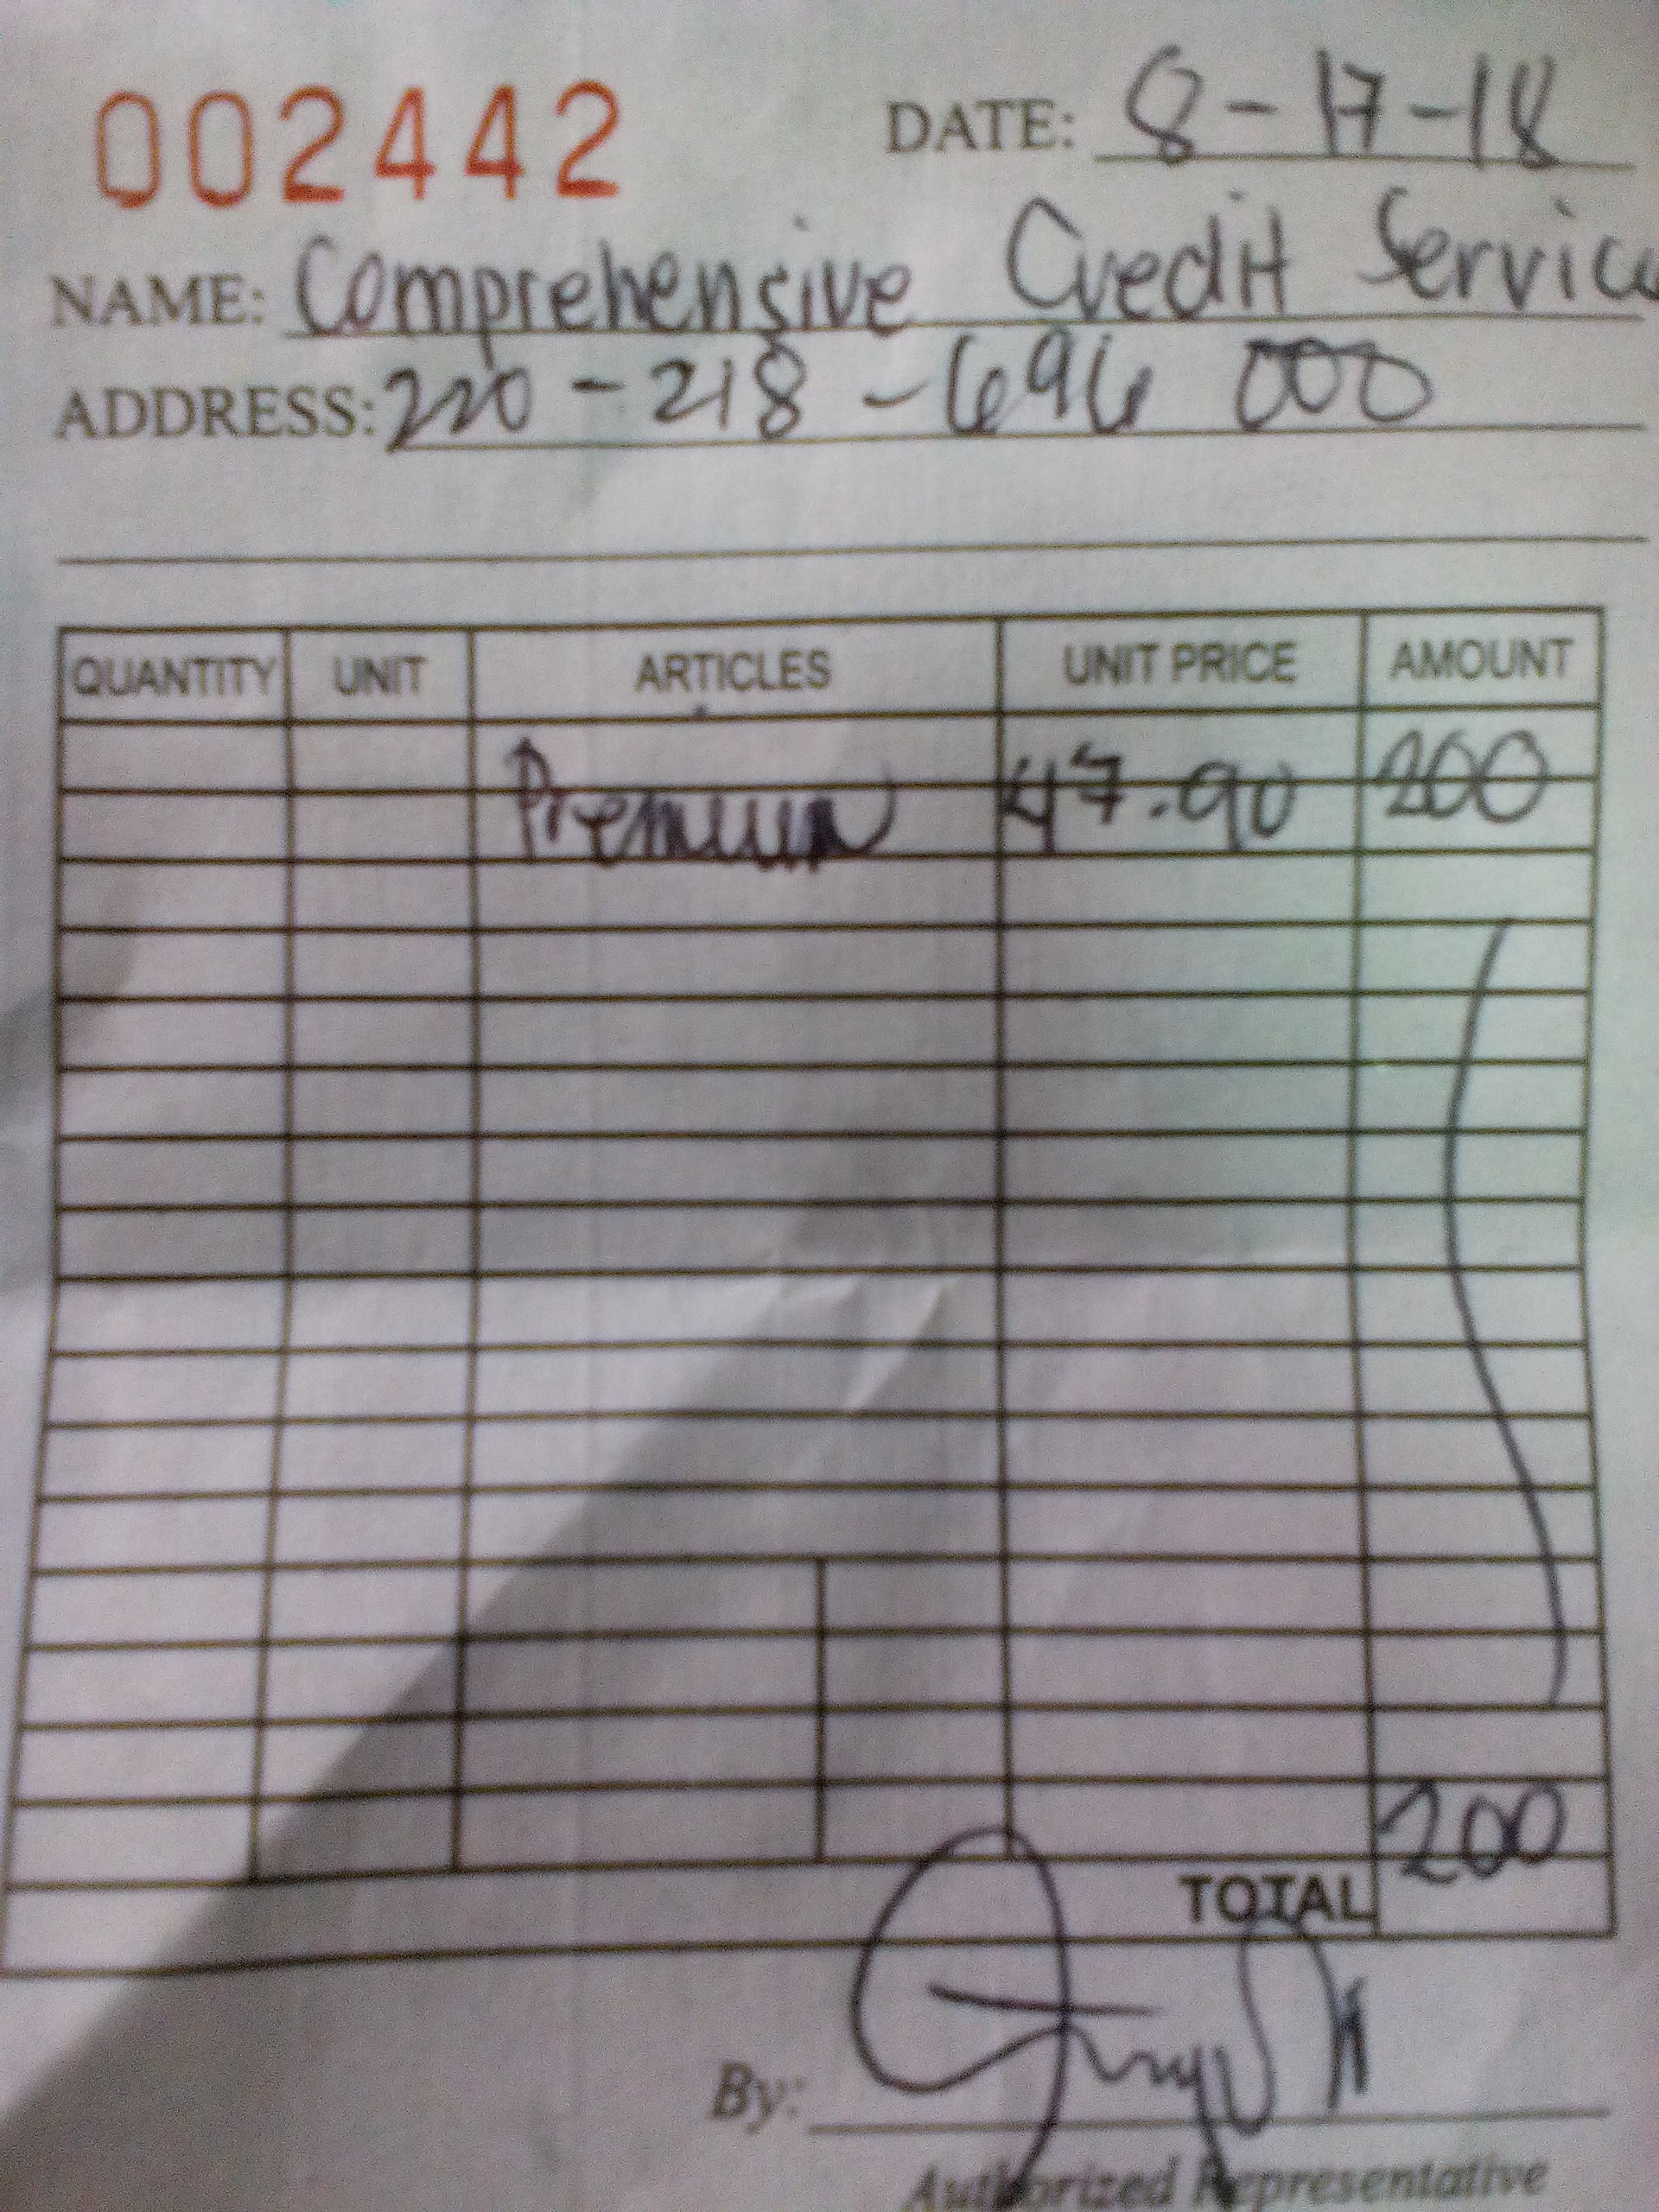 002442 DATE: 8-17-18
NAME: Comprehensive Credit Service
ADDRESS: 220-218-696 000
QUANTITY UNIT ARTICLES UNIT PRICE AMOUNT
Premium 47.90 200
200
TOTAL
By:
Authorized Representative